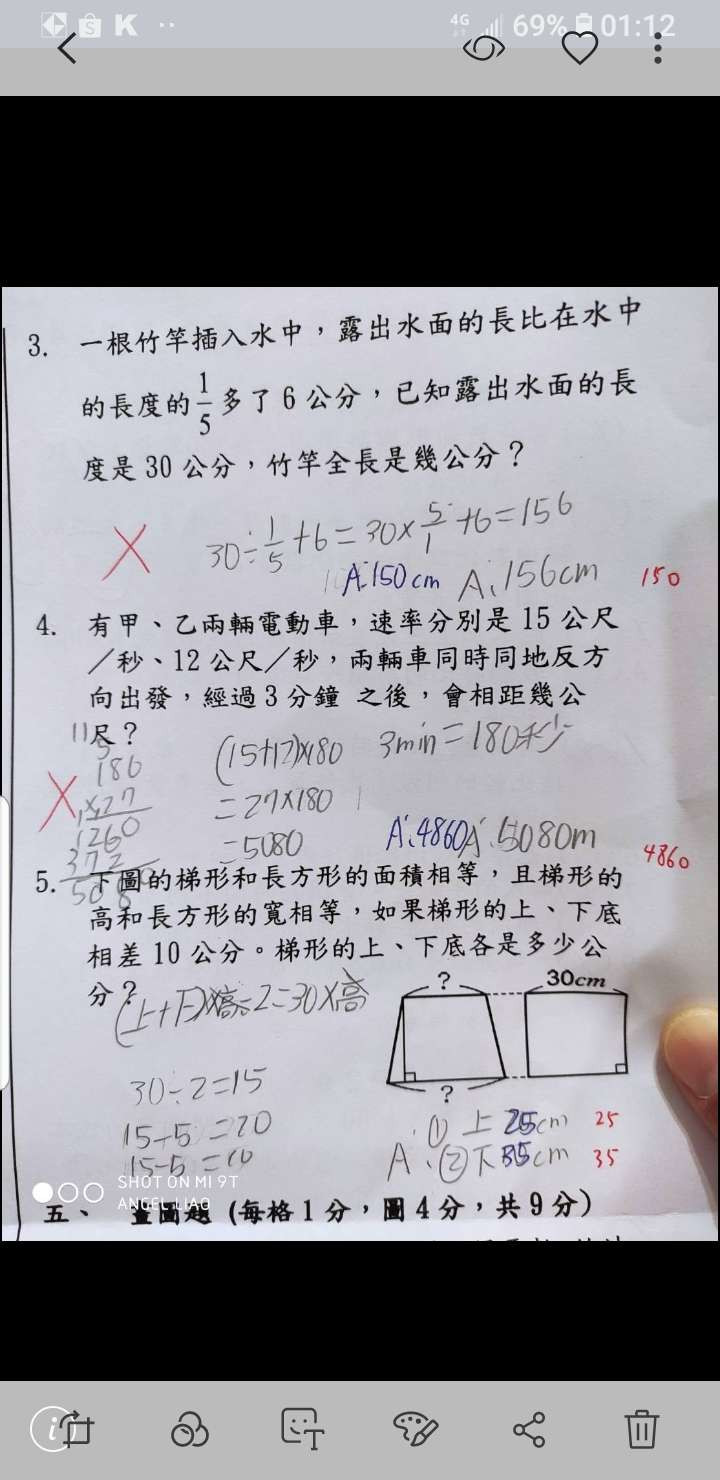 4G 69% 01:12
3. 一根竹竿插入水中，露出水面的長比在水中
的長度的1/5多了 6 公分，已知露出水面的長
度是 30 公分，竹竿全長是幾公分？
30÷1/5+6=30×5/1+6=156
A:150cm A:156cm 150
4. 有甲、乙兩輛電動車，速率分別是 15 公尺
／秒、12 公尺／秒，兩輛車同時同地反方
向出發，經過 3 分鐘 之後，會相距幾公
尺？
(15+12)×180 3min=180秒
=27×180
=5080
A:4860 A:5080m 4860
180
×27
1260
372
5080
5. 下圖的梯形和長方形的面積相等，且梯形的
高和長方形的寬相等，如果梯形的上、下底
相差 10 公分。梯形的上、下底各是多少公
分？
(上+下)×高÷2=30×高
? 30cm
?
30÷2=15
15+5=20
15-5=10
① 上 25cm 25
A: ② 下 35cm 35
SHOT ON MI 9T
ANGEL LIAO
五、 畫圖題 (每格 1 分，圖 4 分，共 9 分)